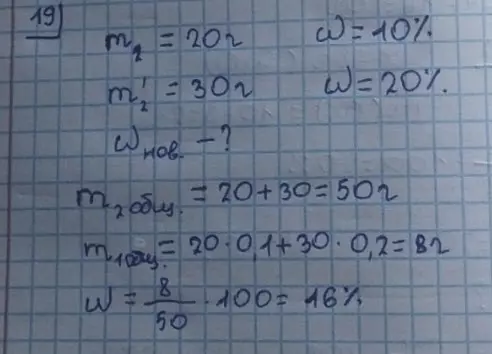 19)
m₂ = 20г ω = 10%
m₂' = 30г ω = 20%.
ω нов. - ?
m₂ общ. = 20 + 30 = 50г
m₁ общ. = 20 · 0,1 + 30 · 0,2 = 8г
ω = 8/50 · 100 = 16%